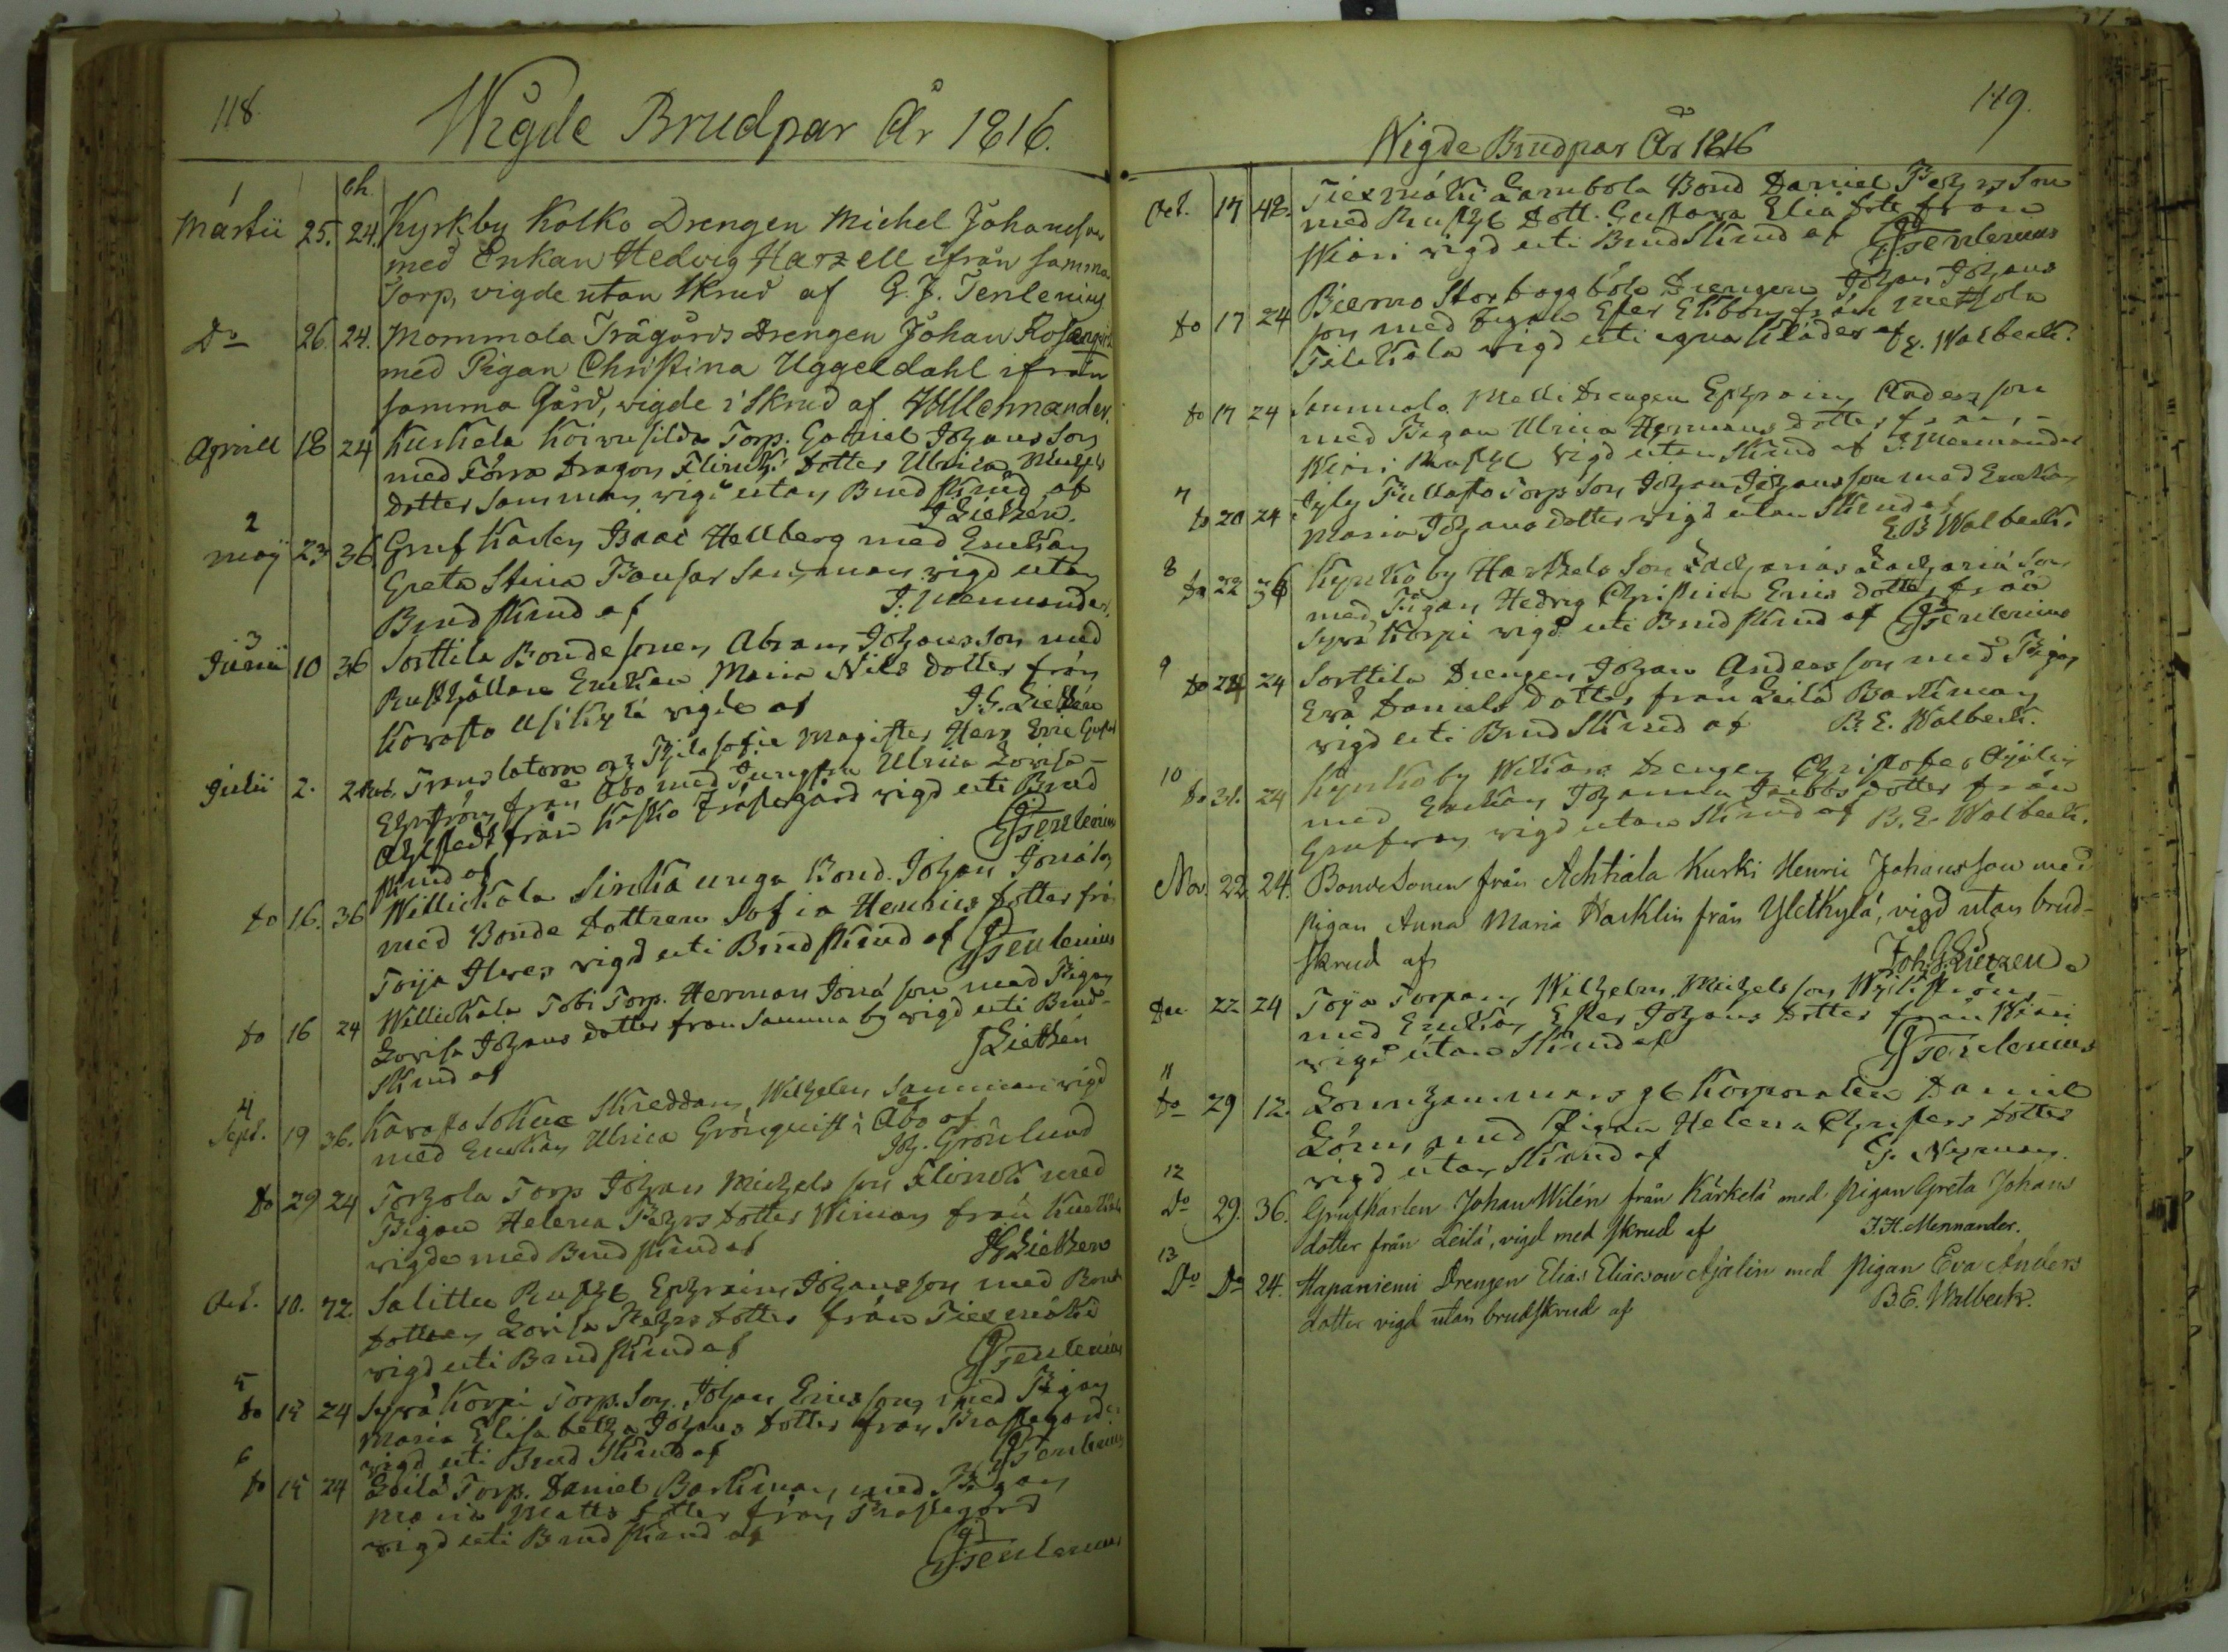 118.
Wigde Brudpar År 1816.
sk.
Martii 25. 24. Kyrkby Kolko Drengen Michel Johansson
med Enkan Hedvig Harzell ifrån samma
Torp, vigde utan Skrud af G. J. Tenlenius
Do 26. 24. Mommola Trägårds Drengen Johan Rosenqvist
med Pigan Christina Uggeldahl ifrån
samma Gård, vigde i Skrud af Mennander.
Aprill 18 24 Kuskela Torp. Gabriel Johansson
med Dragon Dotter Ulrica
dotter samman, wigd utan Brudskrud af
J Lietzen.
2
Maij 23 36 Grufkarlen Isaac Hellberg med Enckan
Greta Stina samman wigd utan
Brudskrud af J. Mennander.
3
Junii 10 36 Sorttila Bondesonen Abram Johansson med
Rusthållare Enckan Maria Nils dotter från
Kavasto Usikylä wigde af J. G. Lietzén
Julii 2. Translatorn och Filosofie Magister Herr Eric Gustaf
Ehrström från Åbo med Jungfru Ulrica Lovisa
Ahlstedt från Kisko Prästegård wigd uti Brud
skrud af GJTenlenius
do 16. 36 Willickala Sirckä unga Bond. Johan Jonäson
med Bonde Dottren Sofia Henrics dotter från
Toija Ilves wigd uti Brudskrud af GJTenlenius
do 16 24 Willickala Tobi Torp. Herman Jonäson med Pigan
Lovisa Johans dotter från samma by wigd uti Brud-
skrud af JLietzén
4
Sept. 19 36. Kavasto Skreddaren Wilhelm samman wigd
med Enckan Ulrica Grönquist i Åbo af
Joh. Grönlund
do 29 24 Torhola Torp Johan Michels son Flinck med
Pigan Helena Pehrs dotter Wiman från
wigde med Brudskrud af JGLietzen
Oct. 10. 72. Salittu Rusth. Ephraim Johansson med Bond
dottren Lovisa Pehrs dotter från Tiexmäki
wigd uti Brudskrud af GJTenlenius
5
do 15 24 Sywä Korpi Torp. Son, Johan Ericsson, med Pigan
Maria Elisabetha Johans dotter från Prästegård
wigd uti Brudskrud af GJTenlenius
6
do 15 24 Leilä Torp. Daniel Backman, med Pigan
Maria Matts dotter från Prästegård
wigd uti Brudskrud af GJTenlenius
119.
Wigde Brudpar År 1816
Oct. 17 48. Tiexmäki Lambola Bond Daniel Pehrs Son
med Rusth. Dott. Gustava Elia dotter från
Kiari wigd uti Brudskrud af GJTenlenius
do 17 24 Bierno Storbaggböle Drengen Johan Johans
son med Pigan Ester Ekbom från Metsola
wigd uti egna kläder af E. Walbeck.
do 17 24 Sammalo Drengen Ephraim Andersson
med Pigan Ulrica Hermans dotter från
Kiari Rusth. wigd utan Skrud af J. Mennander
7
do 20 24 Torp. Son Johan Johansson med Enckan
Maria Johans dotter wigd utan Skrud af
E B Walbeck.
8
do 22 36 Kyrkoby Son Zacharias Zachariä Son
med Pigan Hedvig Christina Erics dotter från
Sywä Korpi wigd uti Brudskrud af GJTenlenius
9
do 24 24 Sorttila Drengen, Johan Andersson med Pigan
Eva Daniels dotter från Leilä Backman
wigd uti Brudskrud af B. E. Walbeck.
10
do 31. 24 Kyrkoby Drengen Christofer Ajalin
med Enckan Johanna Jacobs dotter från
wigd utan Skrud af B. E. Walbeck.
Nov. 22. 24. Bondesonen från Achtiala Kurki Henric Johansson med
Pigan Anna Maria Hacklin från Yleskylä, vigd utan brud-
skrud af Joh. G. Lietzen
Do 22 24 Toija Torparen Wilhelm Michelsson
med Enckan Ester Johans dotter från Kiari
wigd utan Skrud af GJTenlenius
11
do 29 12. Korporalen Daniel
Lönn, med Pigan Helena Christers dotter
wigd utan Skrud af G. Nyman.
12
Do 29. 36. Grufkarlen Johan Wilén från Kärkelä med Pigan Greta Johans
dotter från Leilä, vigd med skrud af J. H. Mennander.
13
Do Do 24. Hapaniemi Drengen Elias Eliæson Ajalin med Pigan Eva Anders
dotter vigd utan brudskrud af B. E. Walbeck.